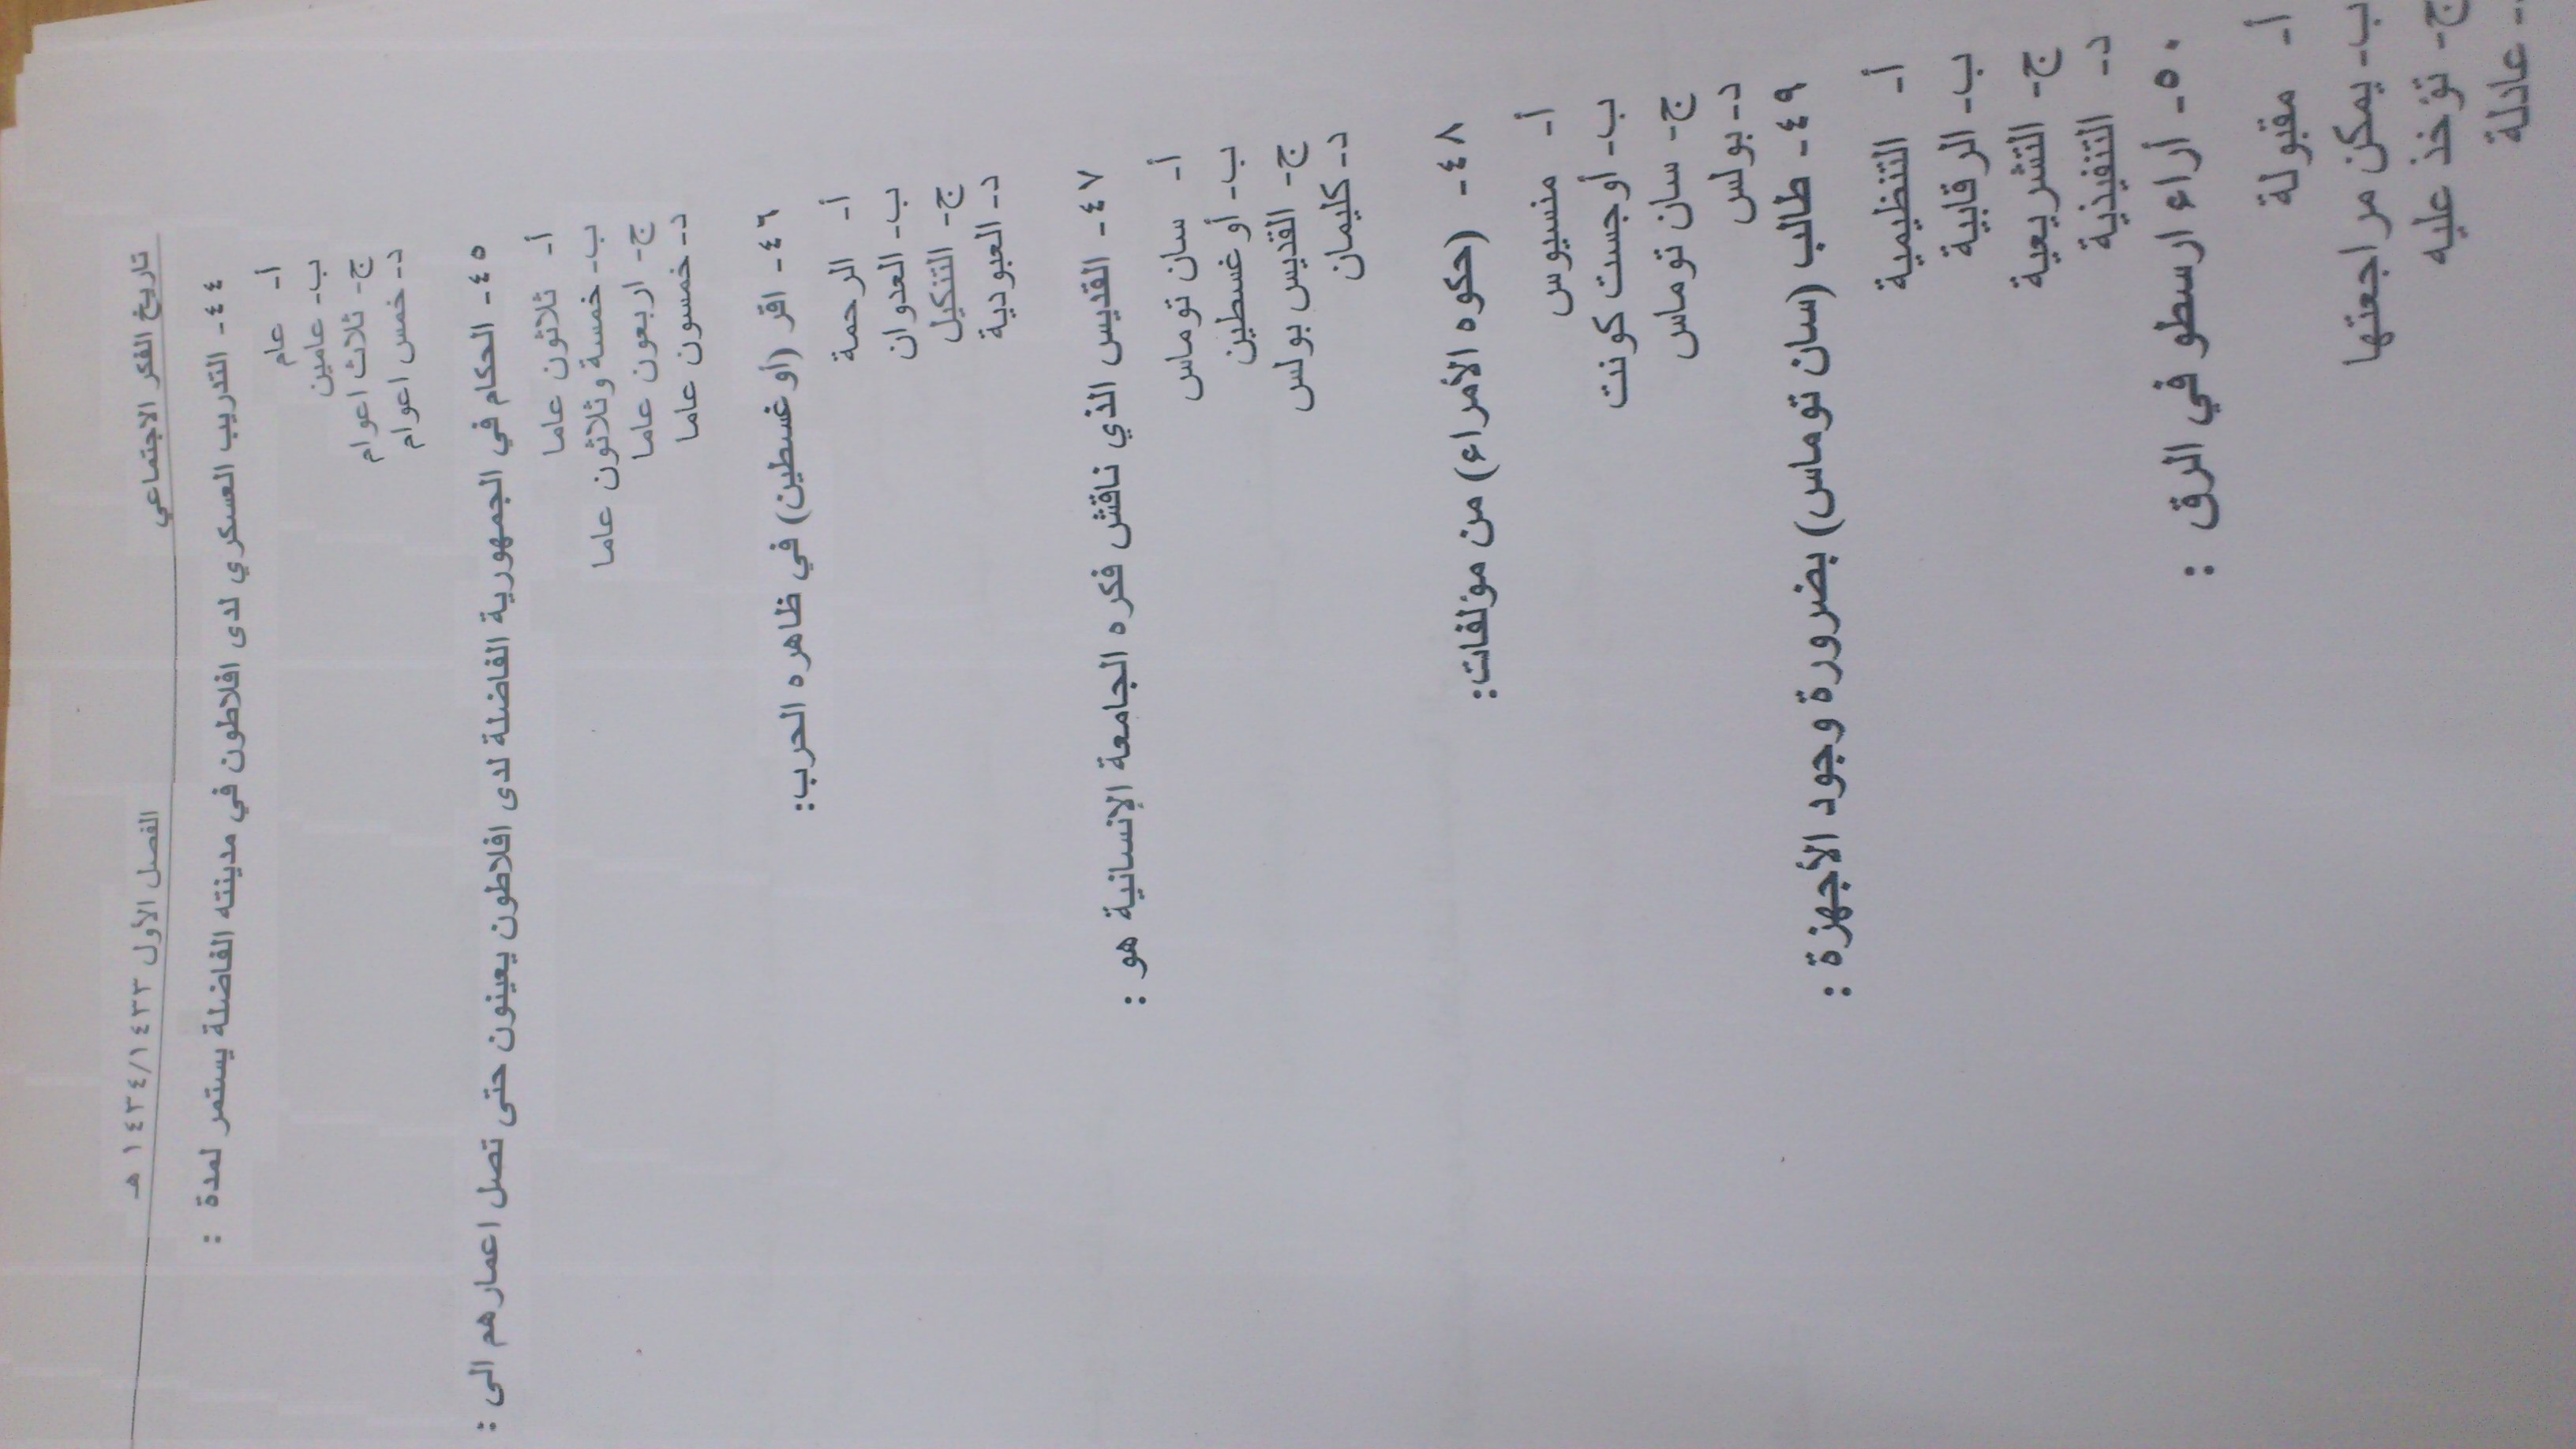 تاريخ الفكر الاجتماعي الفصل الأول ١٤٣٤/١٤٣٣ هـ
٤٤- التدريب العسكري لدى افلاطون في مدينته الفاضلة يستمر لمدة :
أ- عام
ب- عامين
ج- ثلاث اعوام
د- خمس اعوام
٤٥- الحكام في الجمهورية الفاضلة لدى افلاطون يعينون حتى تصل اعمارهم الى :
أ- ثلاثون عاما
ب- خمسة وثلاثون عاما
ج- اربعون عاما
د- خمسون عاما
٤٦- اقر (أوغسطين) في ظاهره الحرب:
أ- الرحمة
ب- العدوان
ج- التنكيل
د- العبودية
٤٧- القديس الذي ناقش فكره الجامعة الإنسانية هو :
أ- سان توماس
ب- أوغسطين
ج- القديس بولس
د- كليمان
٤٨- (حكوه الأمراء) من مؤلفات:
أ- منسيوس
ب- أوجست كونت
ج- سان توماس
د- بولس
٤٩- طالب (سان توماس) بضرورة وجود الأجهزة :
أ- التنظيمية
ب- الرقابية
ج- التشريعية
د- التنفيذية
٥٠- أراء ارسطو في الرق :
أ- مقبولة
ب- يمكن مراجعتها
ج- تؤخذ عليه
د- عادلة